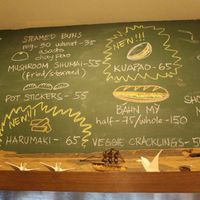 STEAMED BUNS
reg-30 wheat-35
asado
chaypao
MUSHROOM SHUMAI-55
(fried/steamed)
POT STICKERS-55
NEW!!!
HARUMAKI-65
NEW!!!
KUAPAO-65
BAHN MY
half-75/whole-150
VEGGIE CRACKLINGS-5